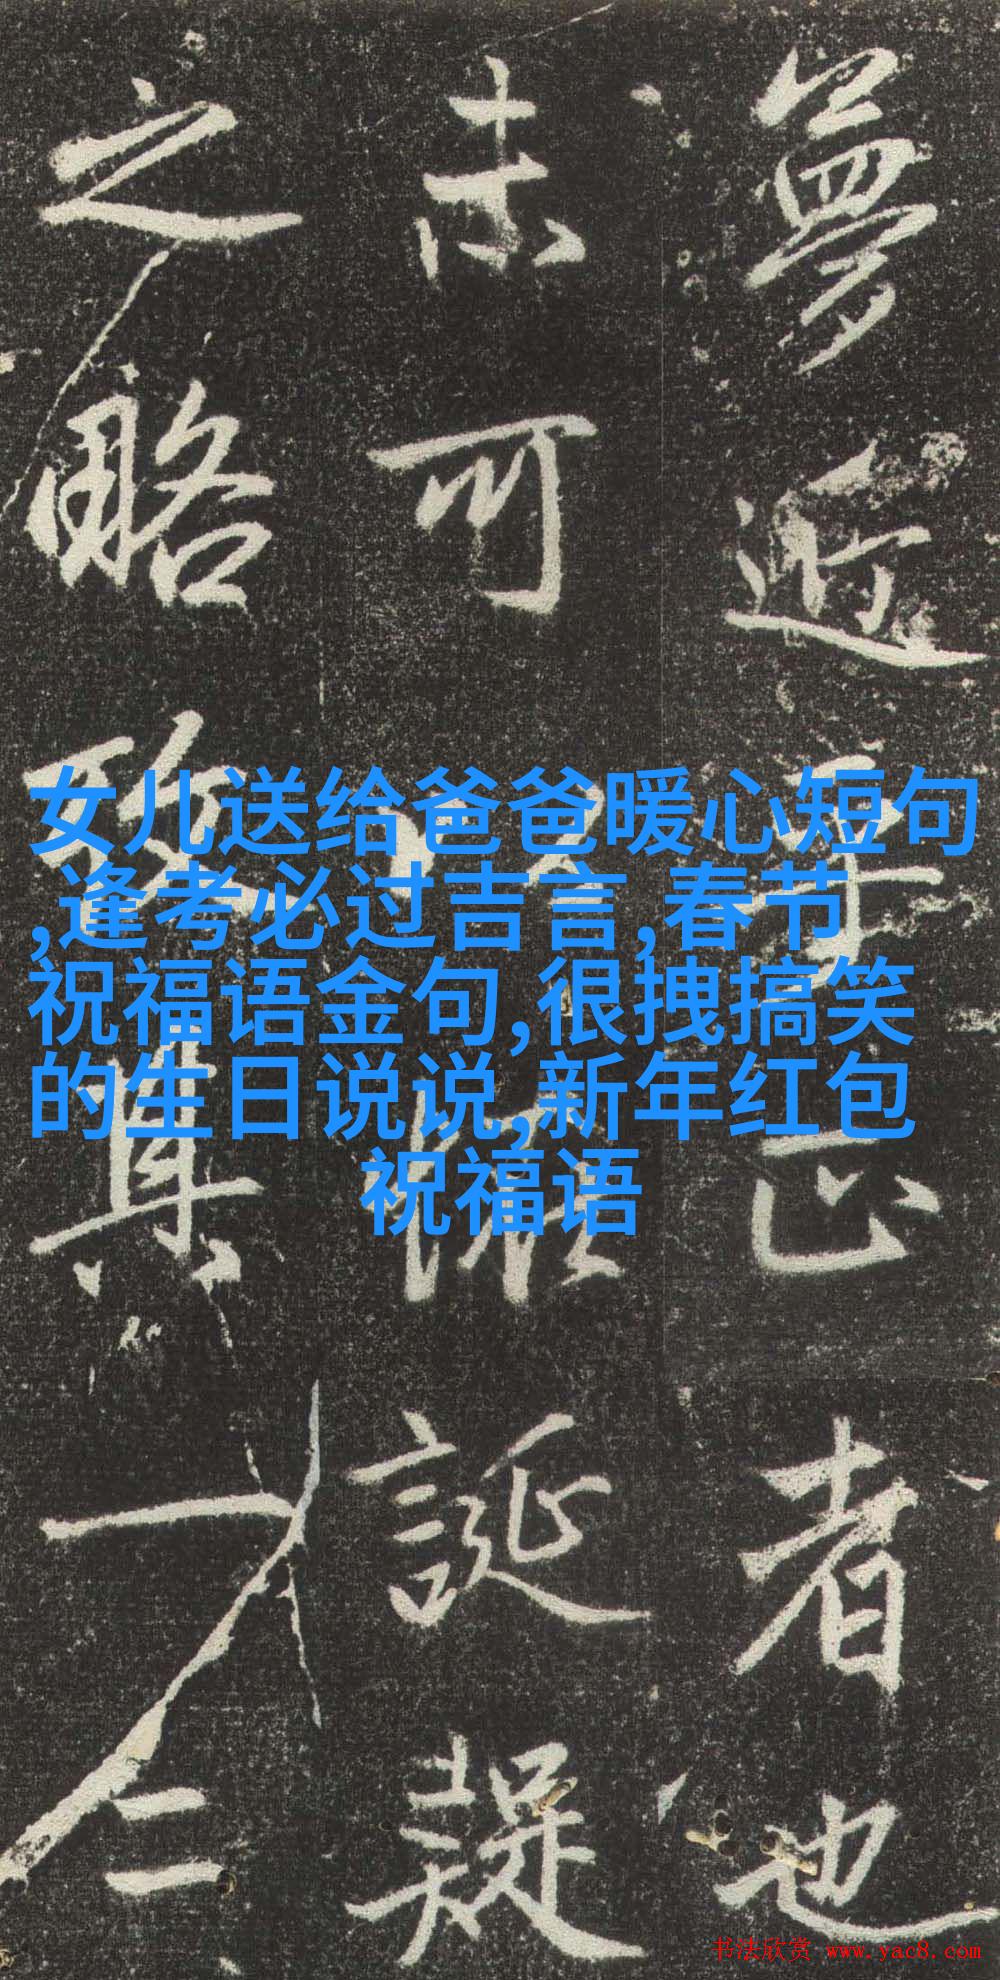 女儿送给爸爸暖心短句
,逢考必过吉言,春节
祝福语金句,很拽搞笑
的生日说说,新年红包
祝福语
夢近
正者也
未可
誕疑
之略
其一二
书法欣赏 www.yac8.com